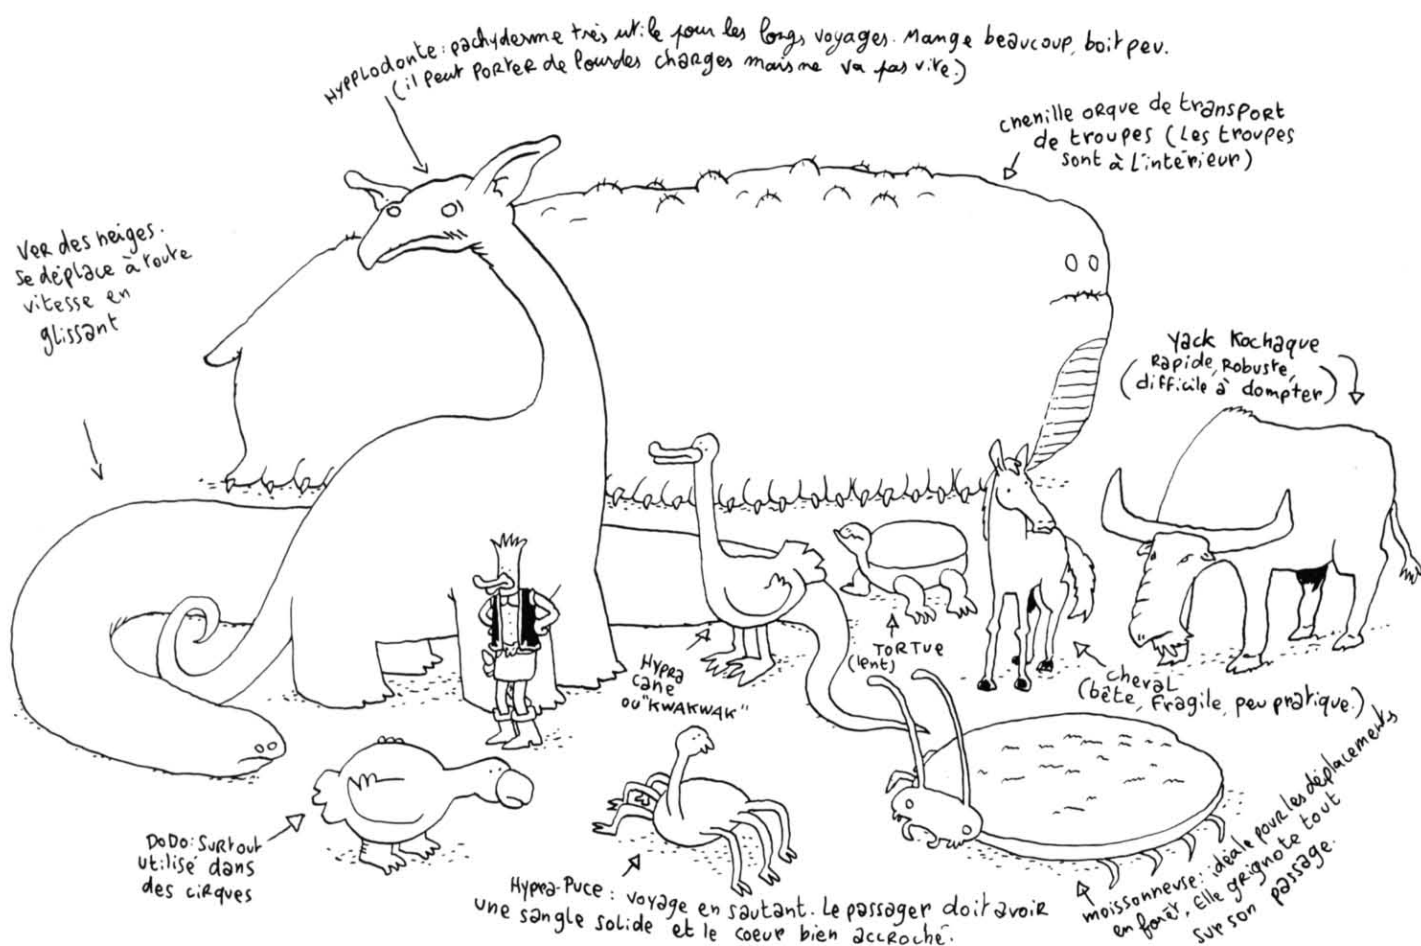 HYPPLODONTE : pachyderme très utile pour les longs voyages. Mange beaucoup, boit peu.
(il peut PORTER de lourdes charges mais ne va pas vite.)
chenille orque de transport
de troupes (Les troupes
sont à l'intérieur)
Ver des neiges.
Se déplace à toute
vitesse en
glissant
Yack Kochaque
Rapide, Robuste,
(difficile à dompter)
Hypra
cane
ou "KWAKWAK"
TORTUE
(lent)
cheval
(bête, fragile, peu pratique.)
DoDo : Surtout
utilisé dans
des cirques
Hypra-Puce : voyage en sautant. Le passager doit avoir
une sangle solide et le coeur bien accroché.
moissonneuse : idéale pour les déplacements
en forêt. Elle grignote tout
sur son passage.